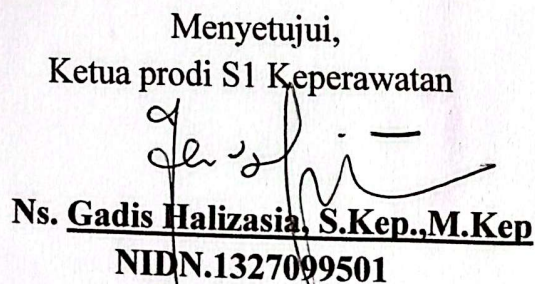 Menyetujui,
Ketua prodi S1 Keperawatan
Ns. Gadis Halizasia, S.Kep.,M.Kep
NIDN.1327099501